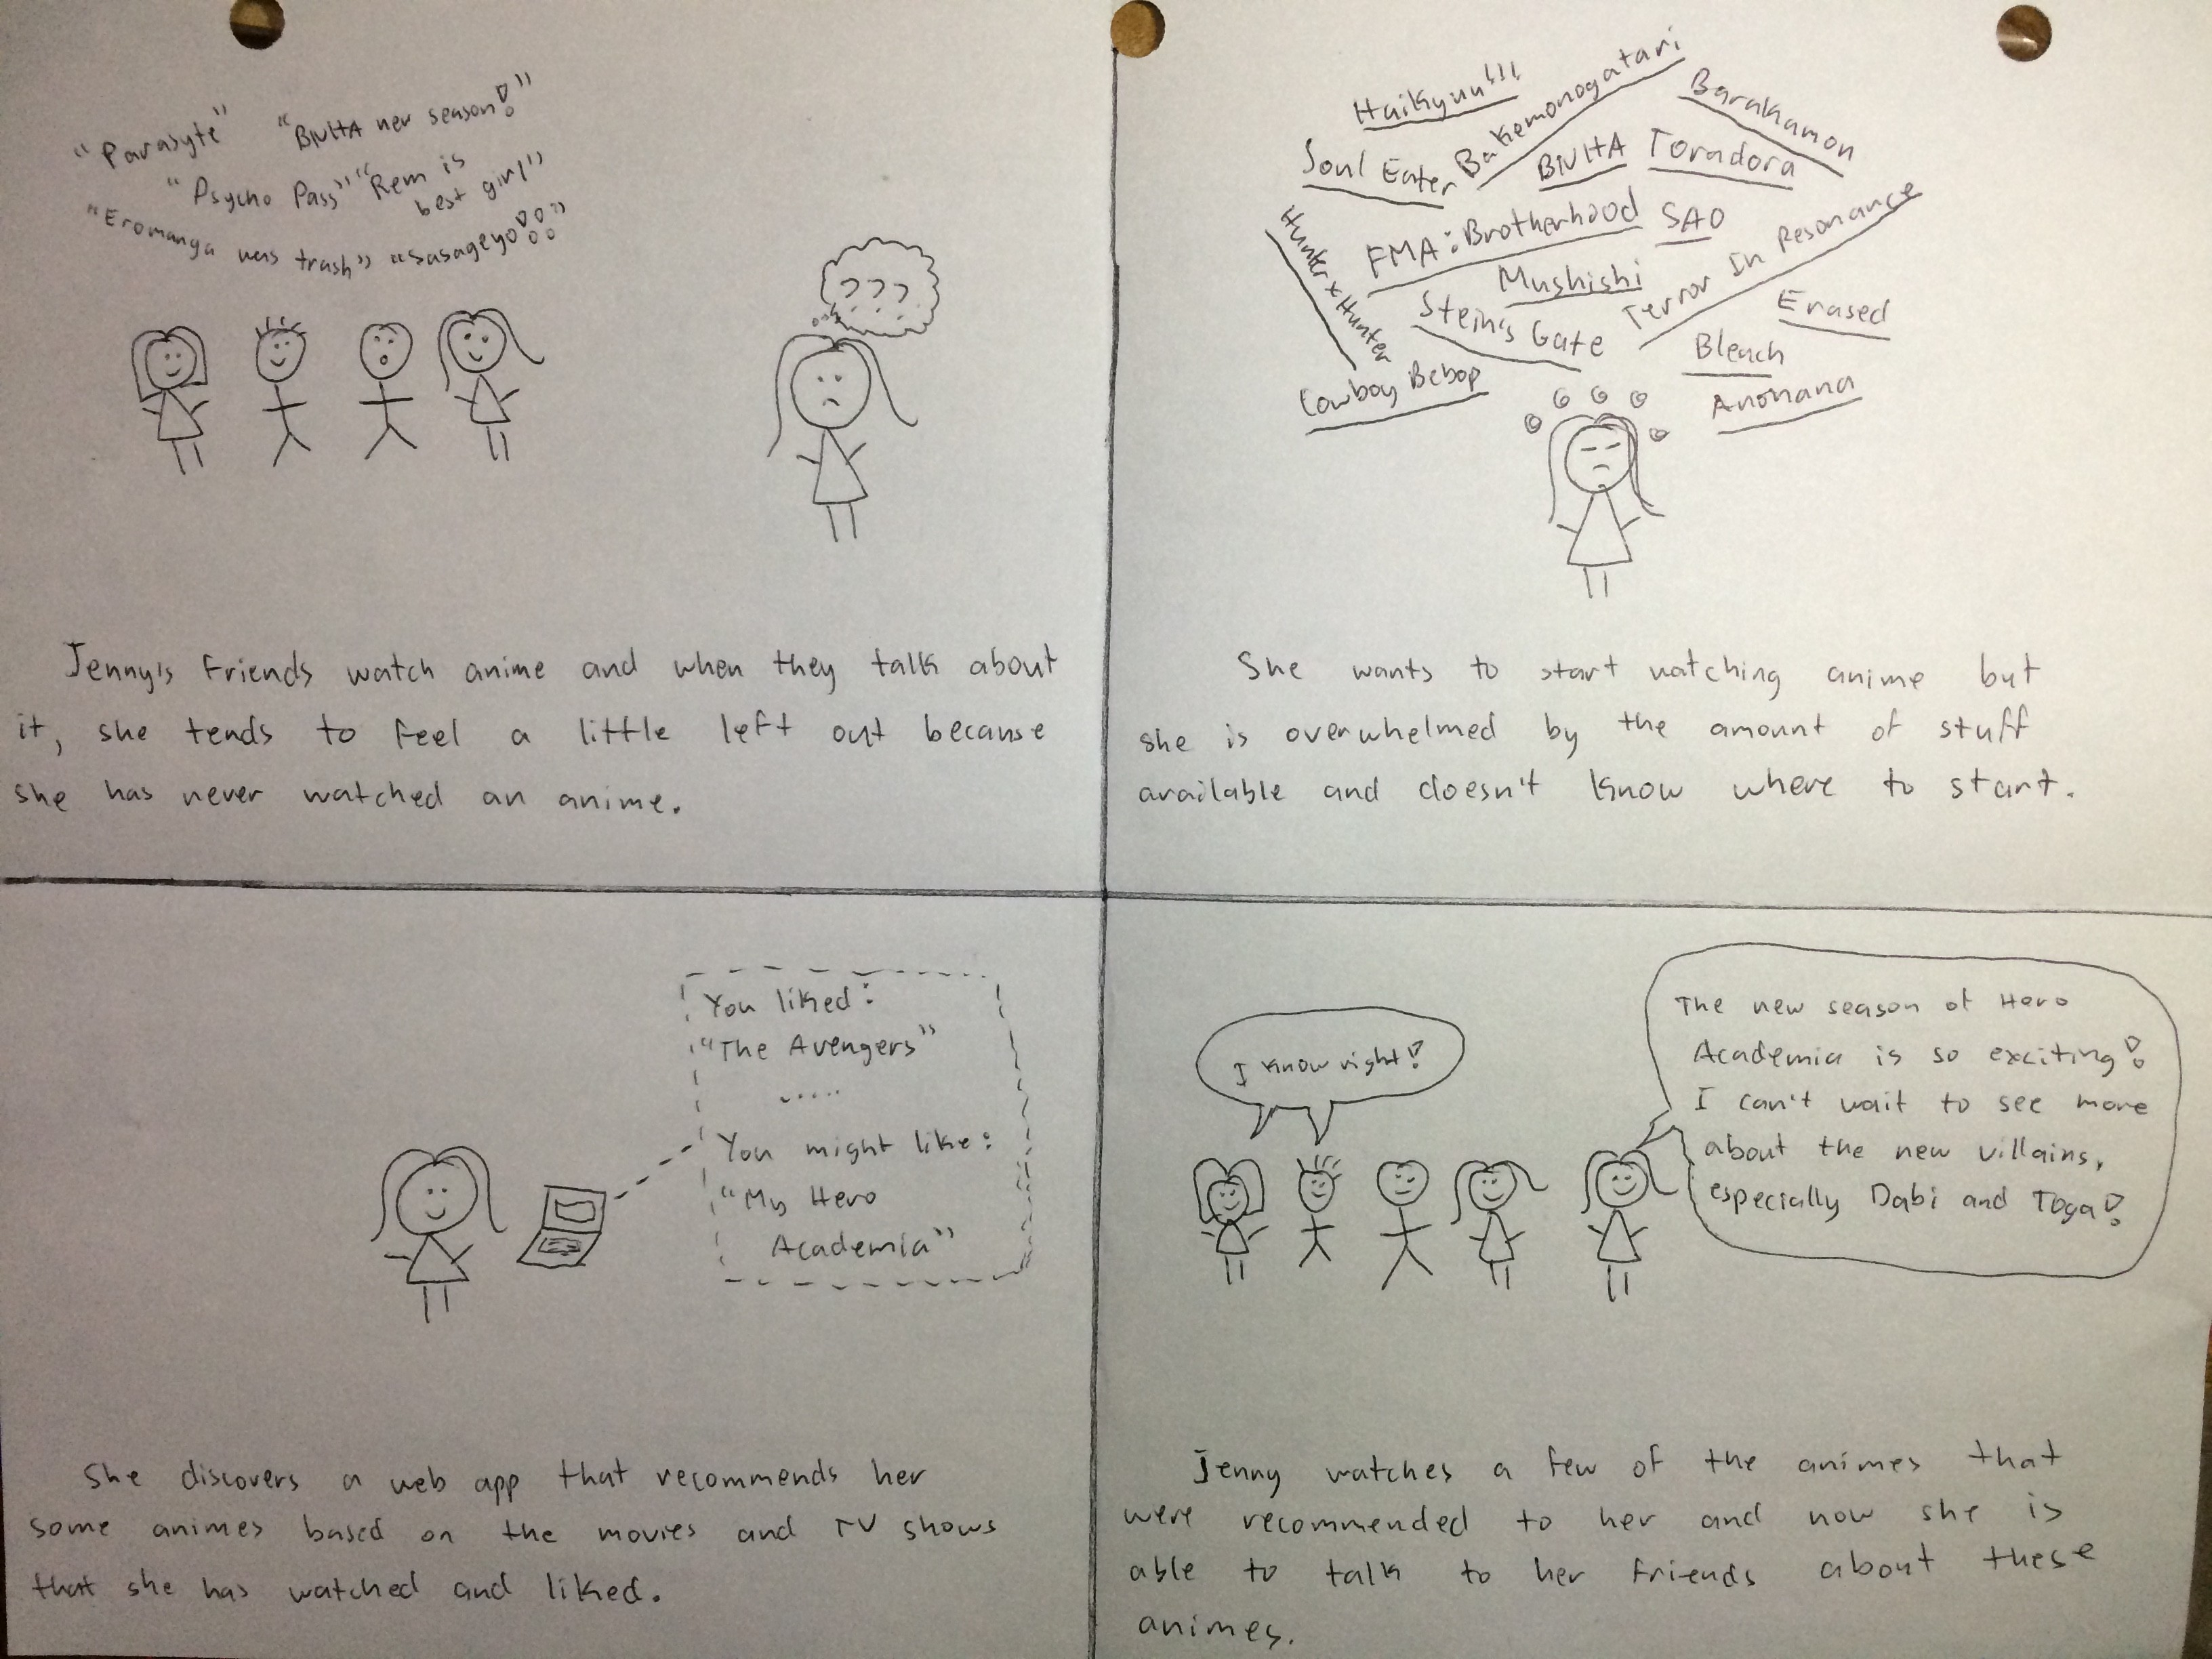 "Parasyte" "BNHA new season!"
"Psycho Pass" "Rem is
best girl"
"Eromanga was trash" "Sasageyo!!!"
???
Jenny's friends watch anime and when they talk about
it, she tends to feel a little left out because
she has never watched an anime.
Haikyuu!!!
Bakemonogatari
Barakamon
Soul Eater
BNHA
Toradora
Hunter x Hunter
FMA: Brotherhood
SAO
Mushishi
Terror In Resonance
Stein's Gate
Erased
Bleach
Cowboy Bebop
Anohana
She wants to start watching anime but
she is overwhelmed by the amount of stuff
available and doesn't know where to start.
You liked:
"The Avengers"
.....
You might like:
"My Hero
Academia"
She discovers a web app that recommends her
some animes based on the movies and TV shows
that she has watched and liked.
I know right!
The new season of Hero
Academia is so exciting!
I can't wait to see more
about the new villains,
especially Dabi and Toga!
Jenny watches a few of the animes that
were recommended to her and now she is
able to talk to her friends about these
animes.